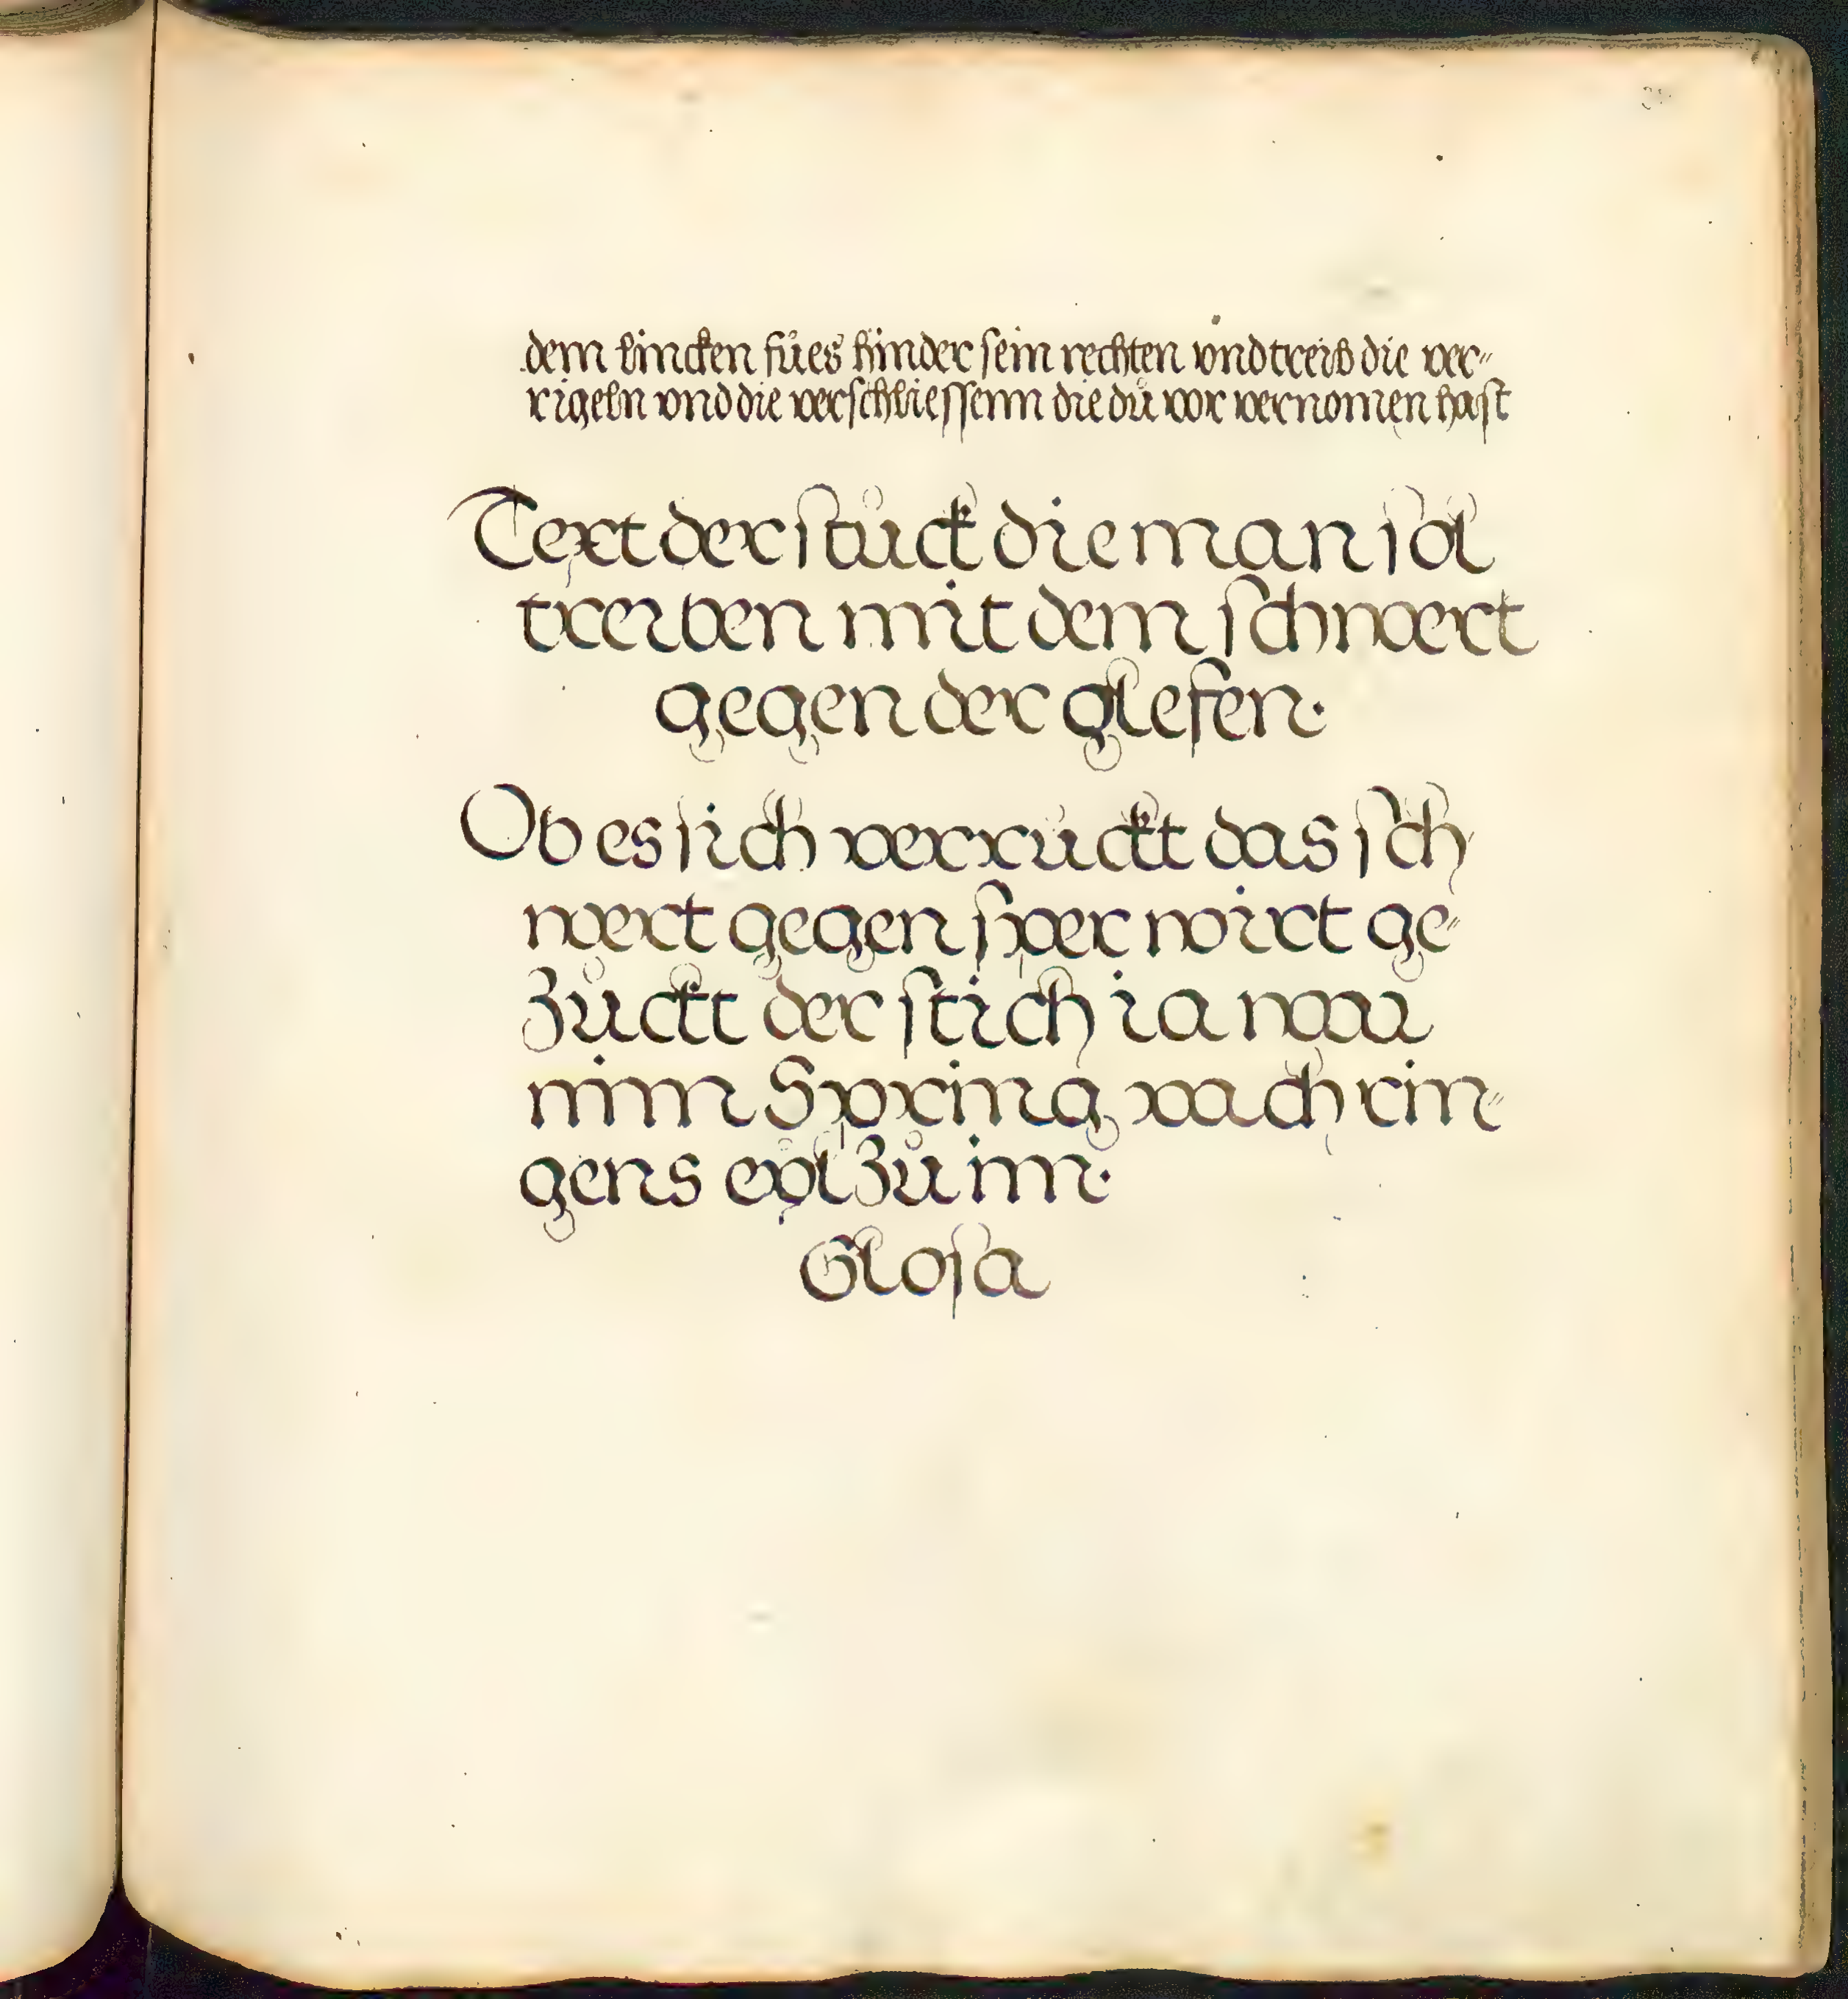 dem lincken fůes hinder sein rechten vnd treib die ver-
rigeln vnd die verschliessenn die dů vor vernomen hast
Text der stuck die man sol
treiben mit dem schwert
gegen der glefen.
Ob es sich verruckt das sch
wert gegen sper wirt ge-
Zůckt der stich ia war
nim Spring vach rin-
gens eyl Zů im.
Glosa